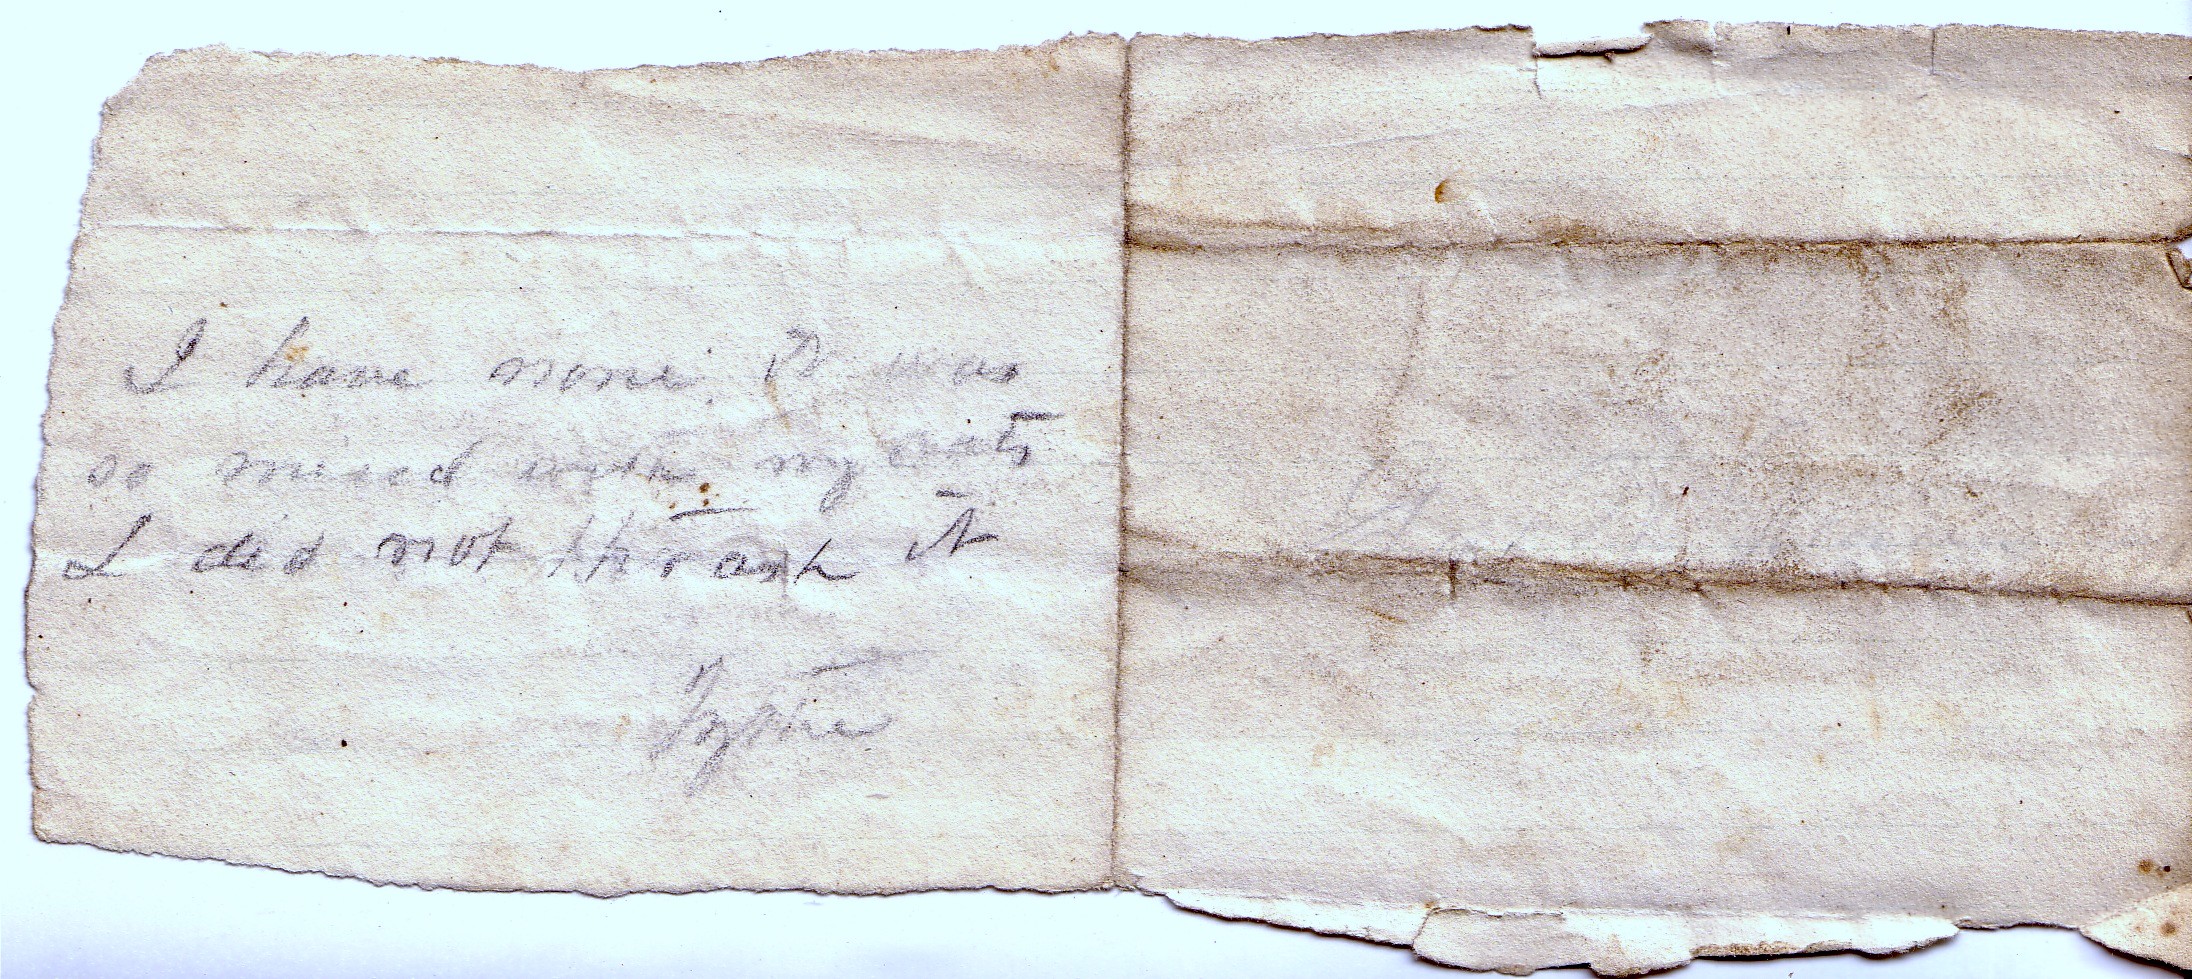 I have none. It was
so mixed with my oats
I did not thrash it